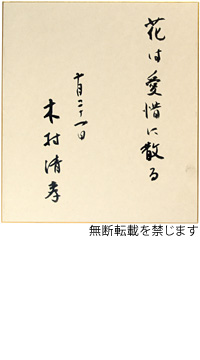 花は愛惜に散る
十月二十一日
木村清孝
無断転載を禁じます